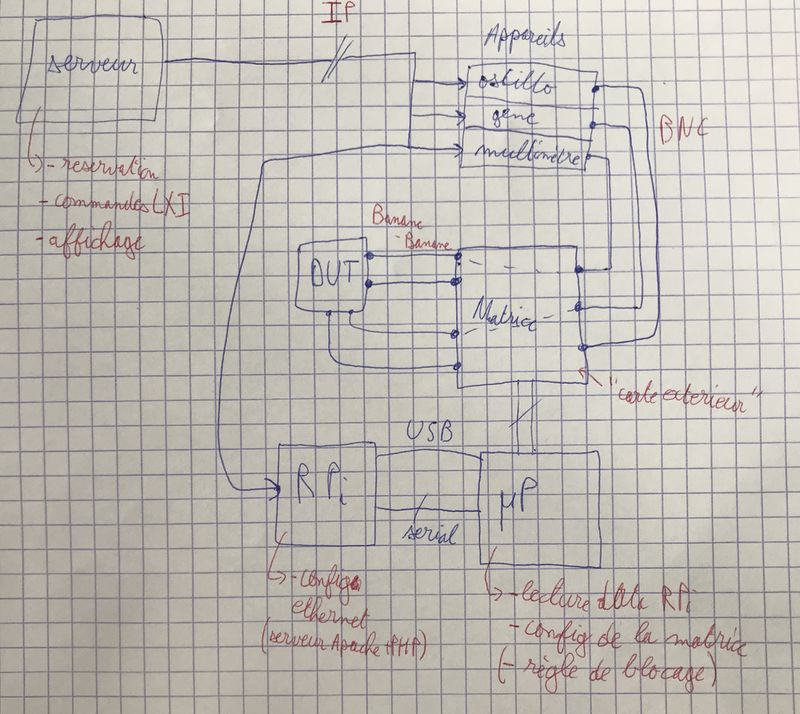 IP
serveur
- reservation
- commandes LXI
- affichage
Appareils
oscillo
géné
multimètre
BNC
Banane
- Banane
DUT
Matrice
"carte exterieur"
USB
RPi
serial
µP
- config
ethernet
(serveur Apache PHP)
- lecture data RPi
- config de la matrice
(- règle de blocage)